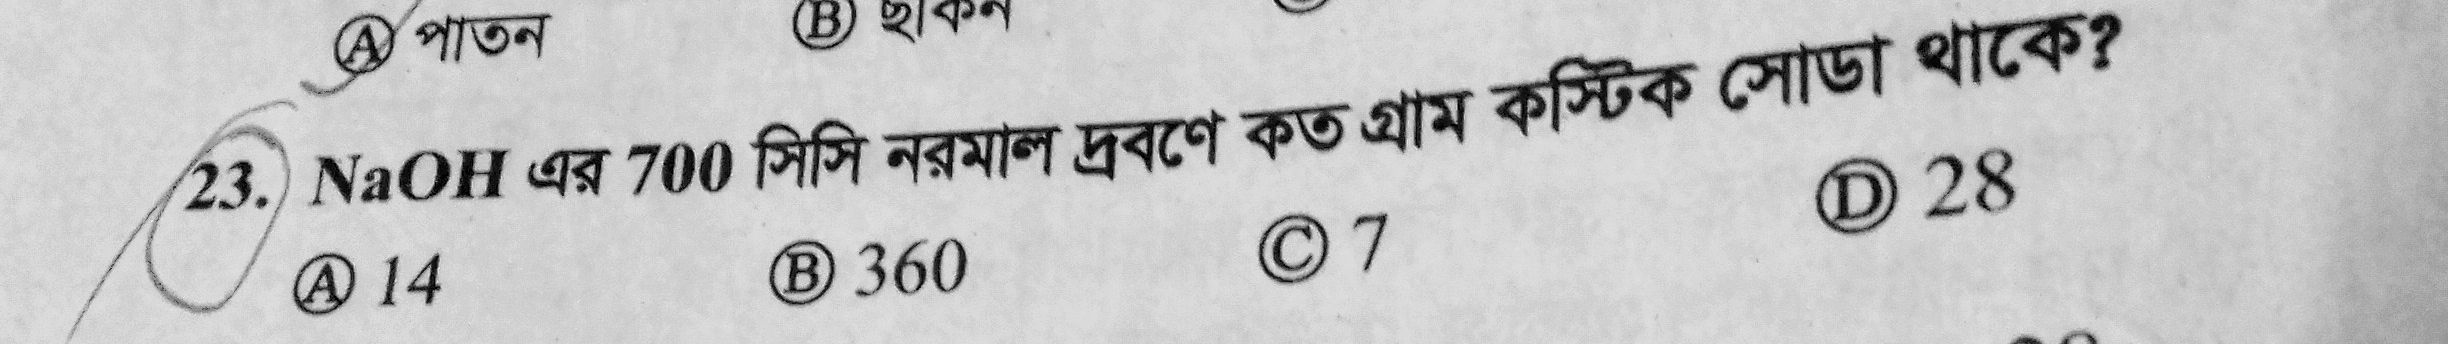 Ⓐ পাতন Ⓑ ছাকন
23. NaOH এর 700 সিসি নরমাল দ্রবণে কত গ্রাম কস্টিক সোডা থাকে?
Ⓐ 14 Ⓑ 360 Ⓒ 7 Ⓓ 28